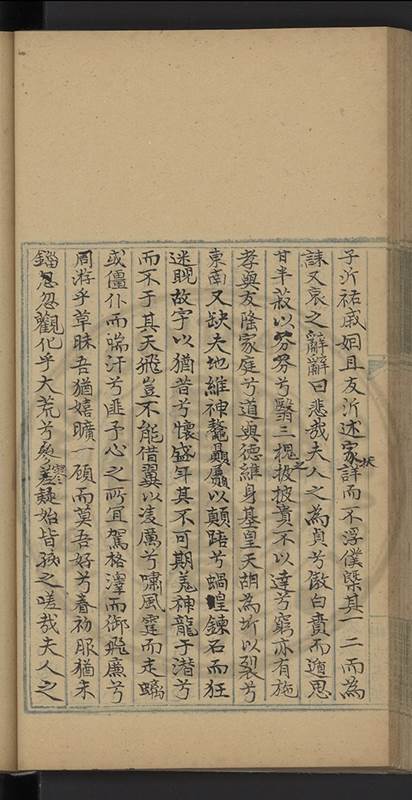 子沂祐戚姻且友沂述家狀詳而不浮僕櫽其一二而為
誄又哀之辭辭曰悲哉夫人之為貞兮儆白賁而遁思
甘半菽以芬芬兮翳三槐之披披貴不以達兮窮亦有施
孝與友隆家庭兮道與德維身基皇天胡為圻以裂兮
東南又缺夫地維神鼇贔屭以顛踣兮蝸蝗鍊石而狂
迷睨故宇以猶昔兮懷盛年其不可期羌神龍于潛兮
而不于其天飛豈不能借翼以淩厲兮嘯風霆而走螭
或僵仆而喘汗兮匪予心之所宜駕格澤而御飛廉兮
周游乎草昧吾猶嬉曠一顧而莫吾好兮眷初服猶未
緇忽忽觀化乎大荒兮寥疑始皆孩之嗟哉夫人之